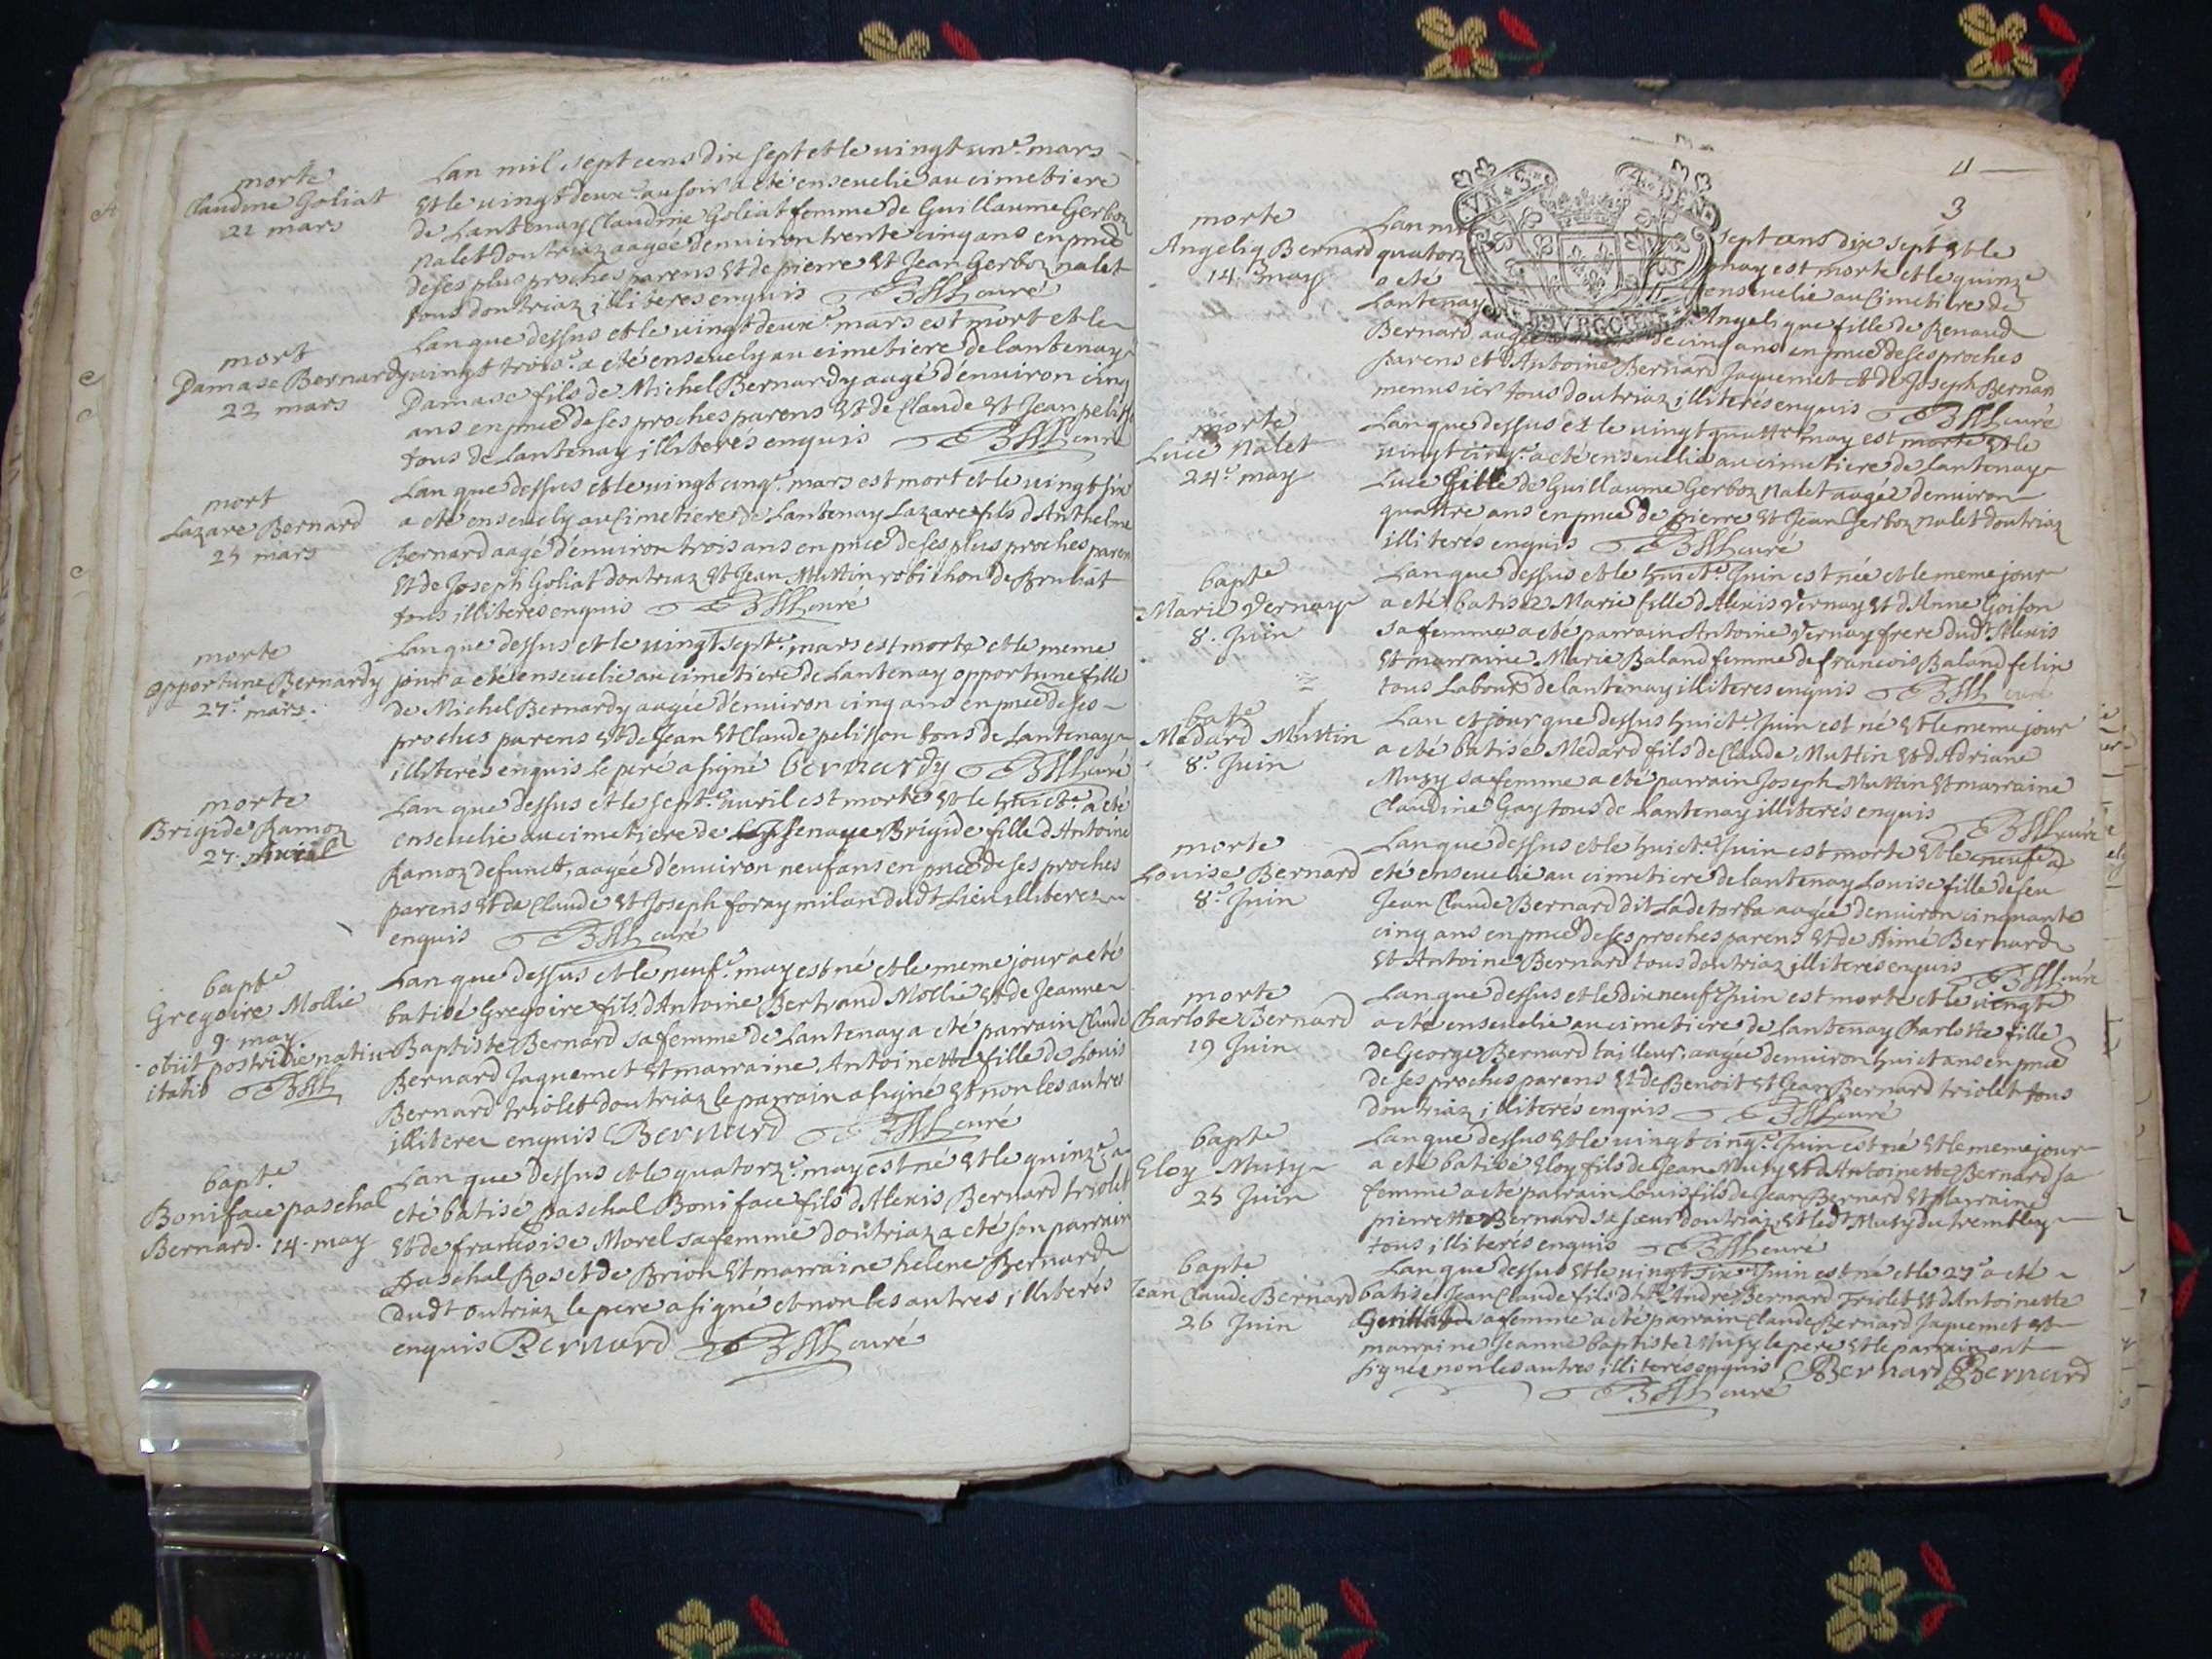 morte
Claudine Goliat
21 mars
Lan mil sept cens dix sept et le vingt un.e mars
et le vingt deux.e au soir a eté ensevelie au cimetiere
de Lantenay Claudine Goliat femme de Guillaume Gerboz
nalet doutriaz aagée denviron trente cinq ans en pnce
de ses plus proches parens et de pierre et Jean Gerboz nalet
tous doutriaz illiteres enquis curé
mort
Damase Bernardy
22 mars
Lan que dessus et le vingt deux.e mars est mort et le
vingt trois.e a eté ensevely au cimetiere de lantenay
Damase fils de Michel Bernardy aagé denviron cinq
ans en pnce de ses proches parens et de Claude et Jean
tous de Lantenay illiterés enquis curé
mort
Lazare Bernard
25 mars
Lan que dessus et le vingt cinq.e mars est mort et le vingt six
a eté ensevely au Cimetiere de Lantenay Lazare fils dAnthelme
Bernard aagé denviron trois ans en pnce de ses plus proches paren
et de Joseph Goliat doutriaz et Jean Muttin robichon de
tous illiteres enquis curé
morte
opportune Bernardy
27.e mars
Lan que dessus et le vingt sept.e mars est morte et le meme
jour a eté ensevelie au cimetiere de Lantenay opportune fille
de Michel Bernardy aagée denviron cinq ans en pnce de ses
proches parens et de Jean et Claude pelisson tous de Lantenay
illiteres enquis le pere a signé bernardy curé
morte
Brigide Ramoz
27. Avril
Lan que dessus et le sept.e Avril est morte et le huict.e a eté
ensevelie au cimetiere de Brigide fille dAntoine
Ramoz defunct, aagée denviron neuf ans en pnce de ses proches
parens et de Claude et Joseph foray milan dudt Lieu illiterez
enquis curé
bapte
Gregoire Mollie
9 may
obiit postridie nativ
itatis
Lan que dessus et le neuf.e may est né et le meme jour a eté
batisé Gregoire fils dAntoine Bertrand Mollie et de Jeanne
Baptiste Bernard sa femme de Lantenay a eté parrain Claude
Bernard Jaquemet et marraine Antoinette fille de Louis
Bernard triolet doutriaz le parrain a signé et non les autres
illiterez enquis Bernard curé
bapt.e
Boniface paschal
Bernard. 14. may
Lan que dessus et le quatorz.e may est né et le quinz.e a
eté batisé paschal Boniface fils dAlexis Bernard triolet
et de francoise Morel sa femme doutriaz a eté son parrain
Paschal Roset de Brion et marraine helene Bernard
dudt outriaz le pere a signé et non les autres illiterés
enquis Bernard curé
11
3
morte
Angeliq Bernard
14.e may
Lan mi sept cens dix sept et le
quatorz may est morte et le quinz.e
a eté ensevelie au Cimetiere de
Lantenay Angelique fille de Renaud
Bernard aagée de cinq ans en pnce de ses proches
parens et dAntoine Bernard Jaquemet et de Joseph Bernar
menusier tous doutriaz illiterés enquis curé
morte
Luce Nalet
24.e may
Lan que dessus et le vingt quattr.e may est morte et le
vingt cinq.e a eté ensevelie au cimetiere de Lantenay
Luce fille de Guillaume Gerboz nalet aagée denviron
quattre ans en pnce de pierre et Jean Gerboz nalet doutriaz
illiterés enquis curé
bapte
Marie Vernay
8. Juin
Lan que dessus et le huict.e Juin est née et le meme jour
a eté batisée Marie fille dAlexis Vernay et dAnne Goifon
sa femme a eté parrain Antoine Vernay frere dudt Alexis
et marraine Marie Baland femme de francois Baland felin
tous Labours de lantenay illiteres enquis curé
bapte
Medard Muttin
8.e Juin
Lan et jour que dessus huict.e Juin est né et le meme jour
a eté batisé Medard fils de Claude Muttin et dAdriane
Musy sa femme a eté parrain Joseph Muttin et marraine
Claudine Gay tous de Lantenay illiterés enquis curé
morte
Louise Bernard
8.e Juin
Lan que dessus et le huict.e Juin est morte et le neuf.e a
eté ensevelie au cimetiere de lantenay Louise fille de feu
Jean Claude Bernard dit aagée denviron cinquante
cinq ans en pnce de ses proches parens et de Aimé Bernard
et Antoine Bernard tous doutriaz illiterés enquis curé
morte
Charlote Bernard
19 Juin
Lan que dessus et le dix neuf.e Juin est morte et le vingte
a eté ensevelie au cimetiere de Lantenay Charlotte fille
de George Bernard tailleur, aagée denviron huict ans en pnce
de ses proches parens et de Benoit et Jean Bernard triolet tous
doutriaz illiterés enquis curé
bapte
Eloy Musy
25 Juin
Lan que dessus et le vingt cinq.e Juin est né et le meme jour
a eté batisé Eloy fils de Jean Musy et dAntoinette Bernard sa
femme a eté parrain Louis fils de Jean Bernard et Marraine
pierrette Bernard sa soeur doutriaz et ledt Musy du trembley
tous illiterés enquis curé
bapte
Jean Claude Bernard
26 Juin
Lan que dessus et le vingt six.e Juin est né et le 27.e a eté
batisé Jean Claude fils dht André Bernard Triolet et dAntoinette
sa femme a eté parrain Claude Bernard Jaquemet et
marraine Jeanne baptiste Musy le pere et le parrain ont
signé non les autres illiteres enquis Bernard Bernard
curé